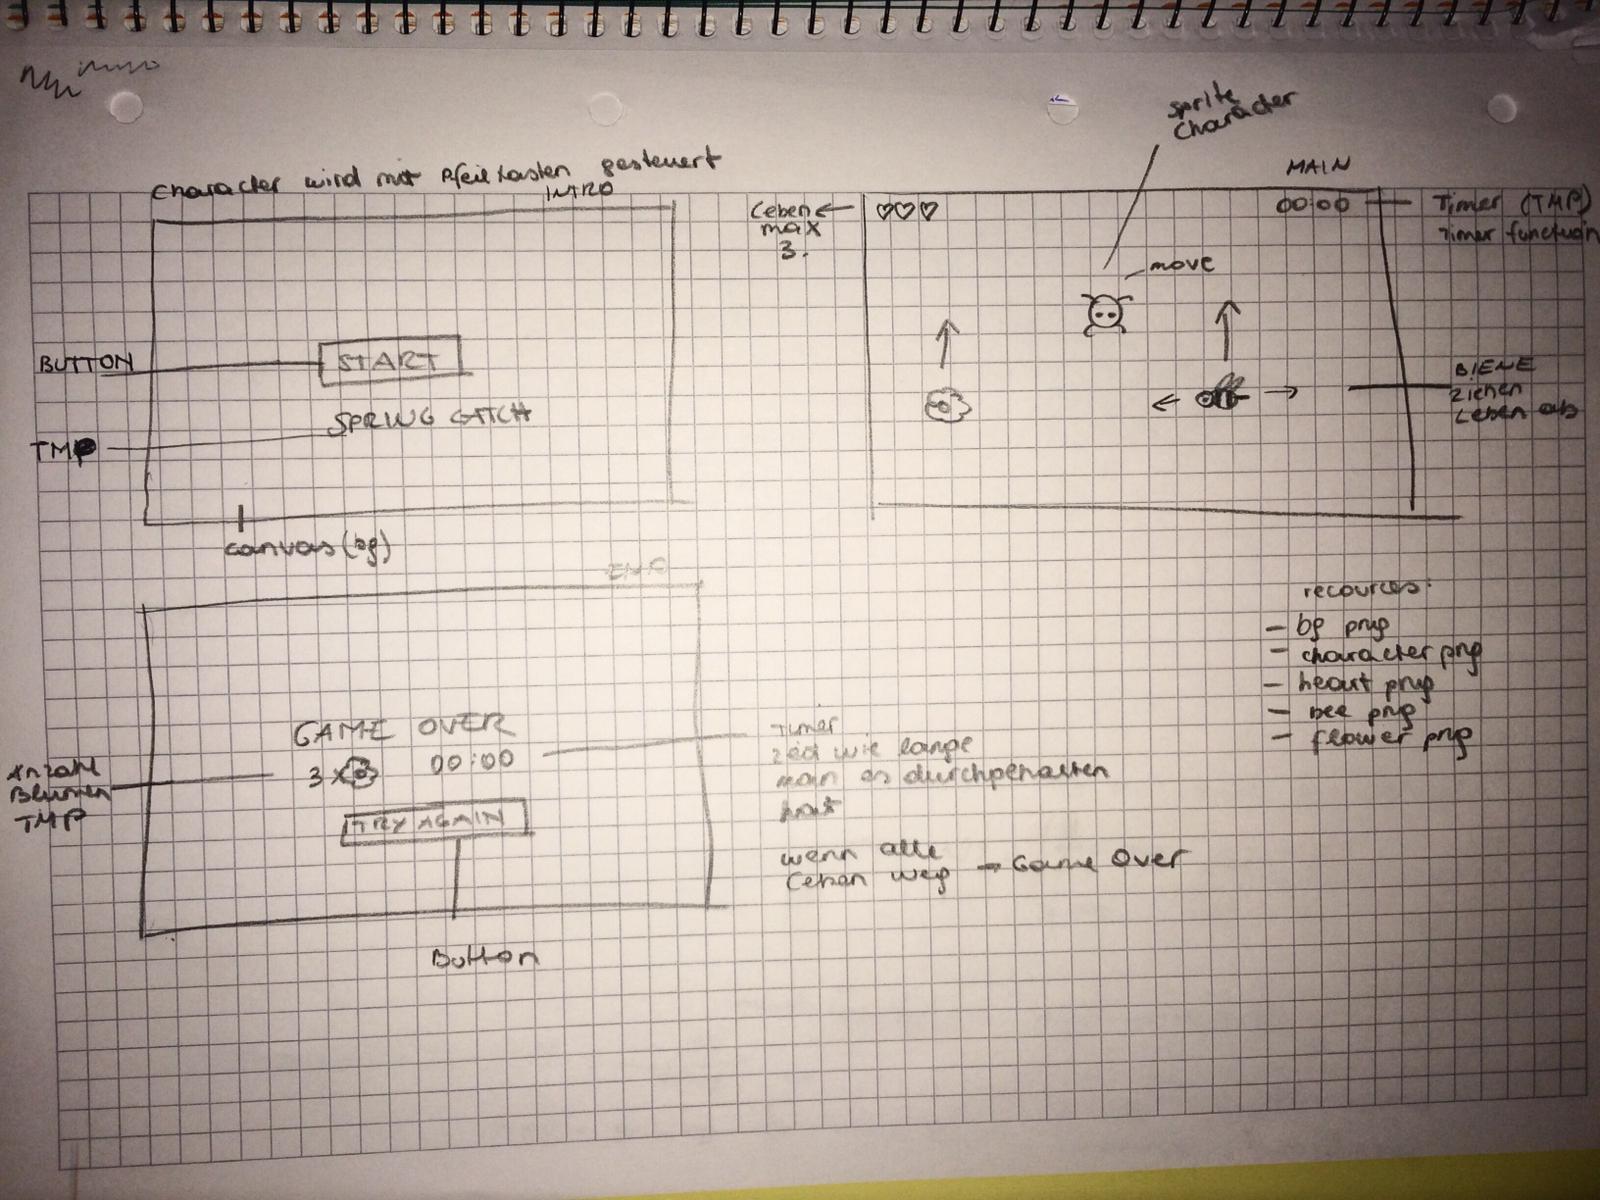 sprite
character
character wird mit Pfeiltasten gesteuert
INTRO
BUTTON
START
SPRING CATCH
TMP
canvas (bg)
MAIN
Leben
max
3.
00:00
Timer (TMP)
Timer function
move
BIENE
ziehen
Leben ab
END
GAME OVER
3x
00:00
TRY AGAIN
Button
Anzahl
Blumen
TMP
Timer
Zeit wie lange
man es durchgehalten
hat
wenn alle
Leben weg → Game Over
recources:
- bg png
- character png
- heart png
- bee png
- flower png